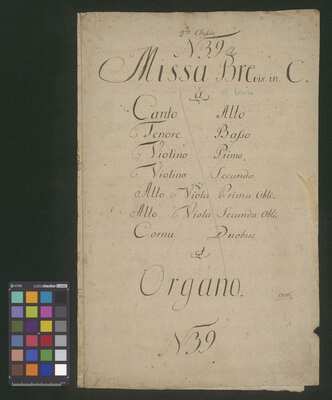 N. 39 a
Missa Brevis. in C.
à
Canto Alto
Tenore Basso
Violino Primo.
Violino Secundo
Alto Viola Prima Obl.
Alto Viola Secunda Obl.
Cornu Duobus
et
Organo.
N 39